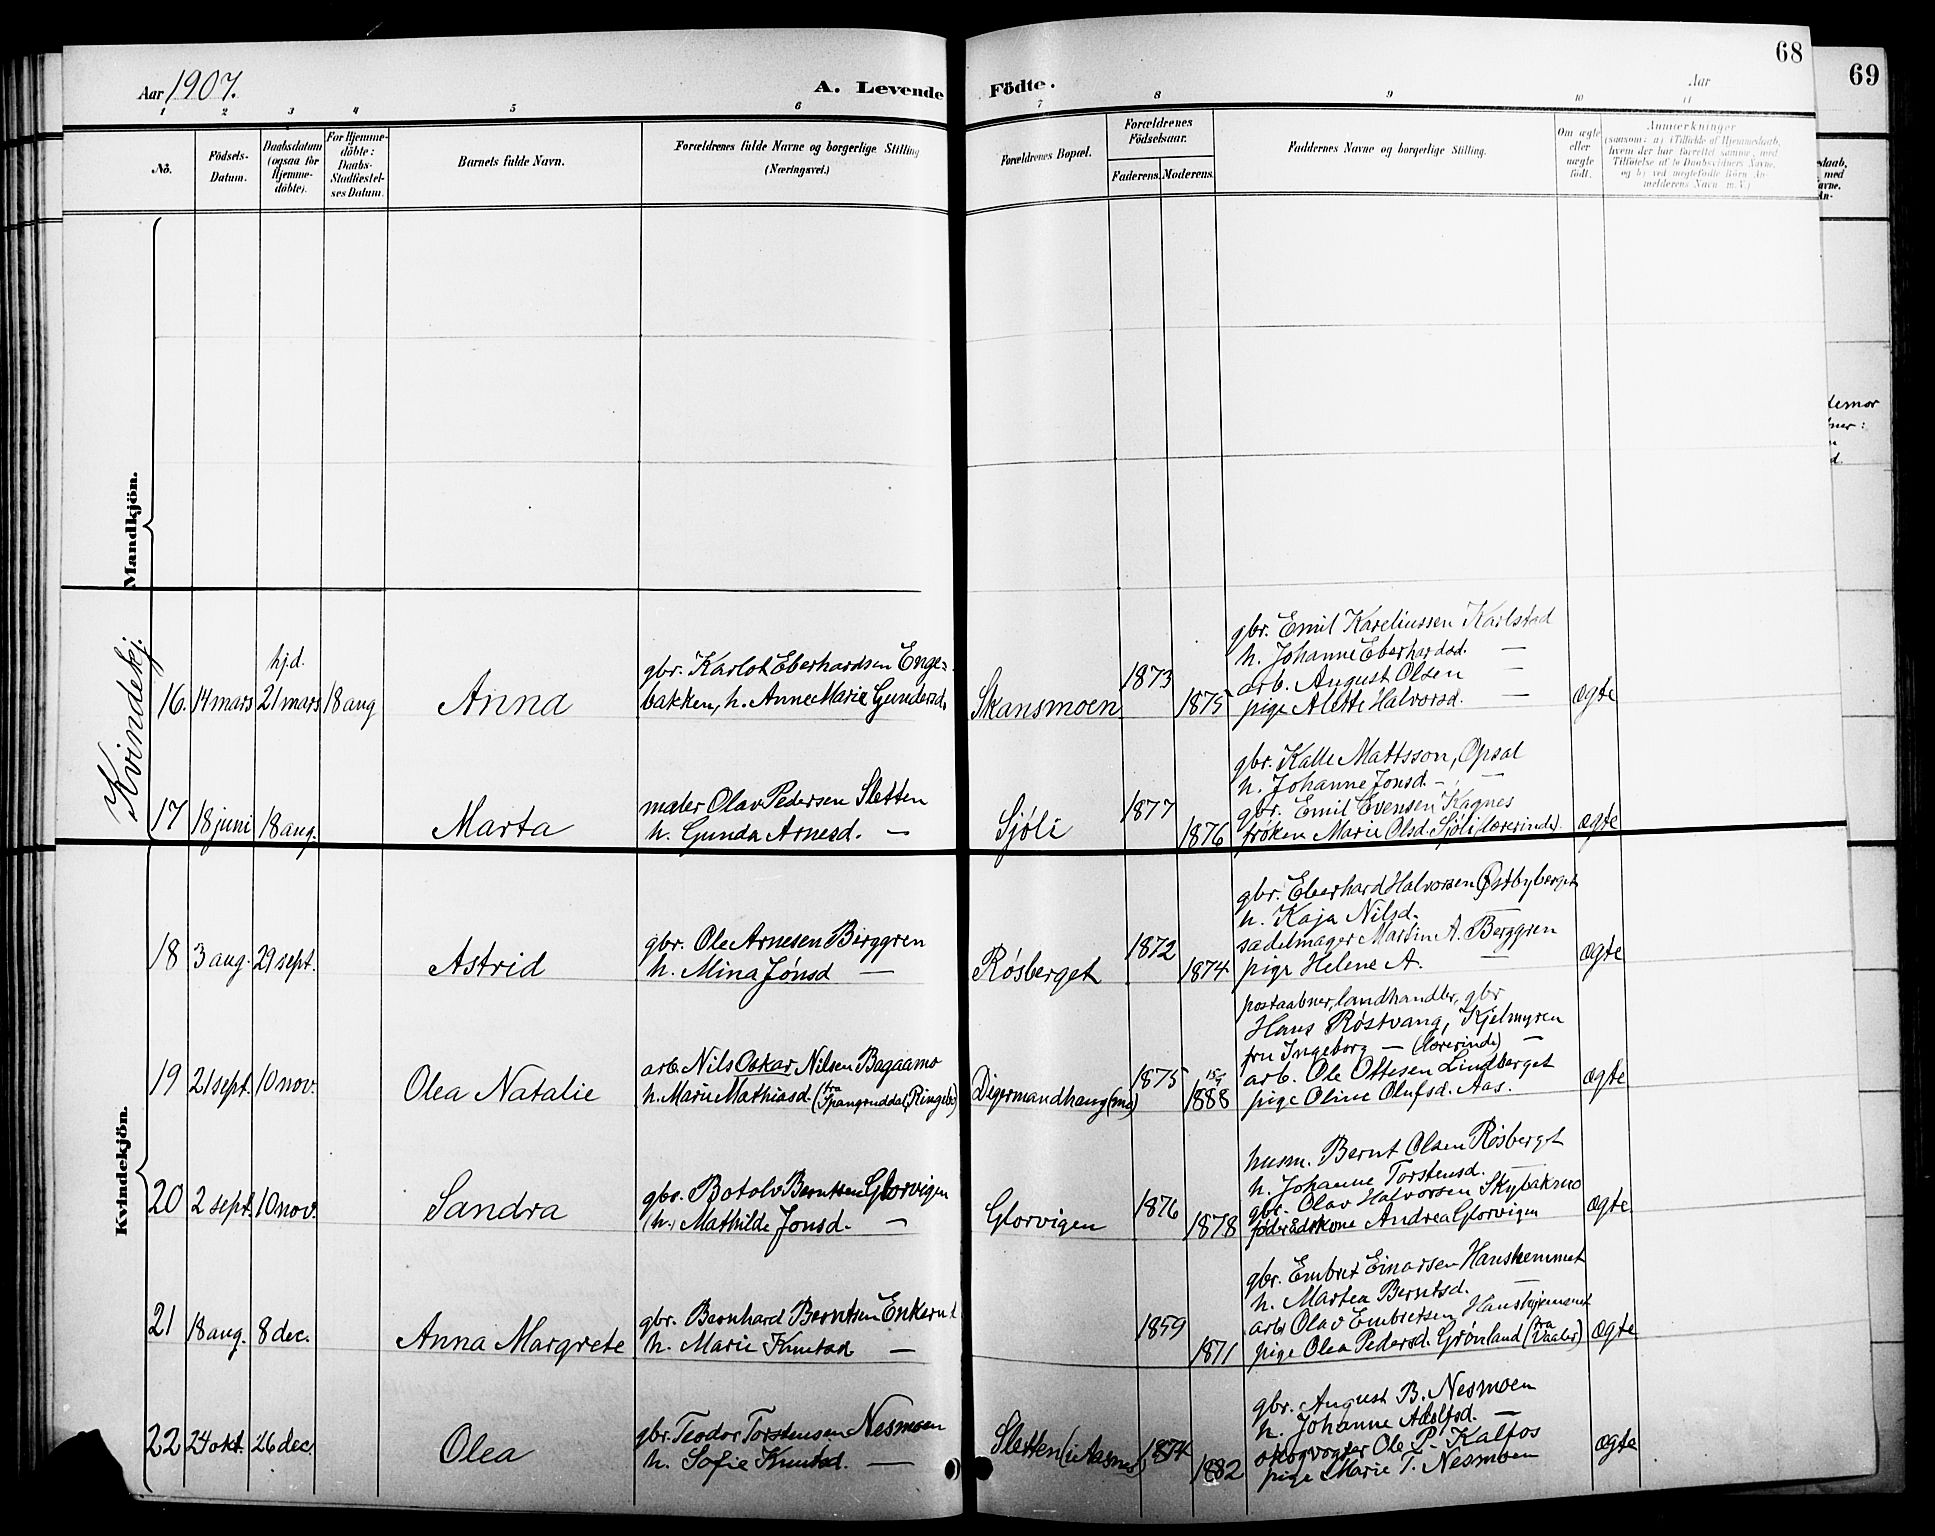 68
69
Aar 1907.
A. Levende Födte.
Aar
1 2 3 4 5 6 7 8 9 10 11
No.
Födsels-Datum.
Daabsdatum (ogsaa for Hjemme-döbte).
For Hjemme-döbte: Daabs-Stadfæstel-ses Datum.
Barnets fulde Navn.
Forældrenes fulde Navne og borgerlige Stilling (Næringsvei.)
Forældrenes Bopæl.
Forældrenes Födselsaar.
Faderens. Moderens.
Faddernes Navne og borgerlige Stilling.
Om ægte eller uægte födt.
Anmærkninger
(saasom: a) i Tilfælde af Hjemmedaab,
hvem der har forrettet samme, med
Tilföielse af to Daabsvidners Navne,
og b) ved uægtefödte Börn An-
mælderens Navn m. V.)
Mandkjön.
Kvindekj.
16. 14 mars hj.d. 21 mars 18 aug
Anna
gbr. Karlot Eberhardsen Enge-
bakken, h. Anne Marie Gundersd.
Skansmoen
1873
1875
gbr. Emil Kareliussen Karlstad
h. Johanne Eberhardsd. —
arb. August Olsen —
pige Alette Halvorsd. —
ægte
17 18 juni 18 aug.
Marta
maler Olav Pedersen Sletten
h. Gunda Arnesd. —
Sjöli
1877
1876
gbr. Kalle Mattsson, Opsal
h. Johanne Jonsd. — —
gbr. Emil Evensen Kagnes
frøken Marie Olsd. Sjöli (lærerinde).
ægte
Kvindekjön.
18 3 aug. 29 sept.
Astrid
gbr. Ole Arnesen Berggren
h. Mina Jónsd —
Røsberget
1872
1874
gbr. Eberhard Halvorsen Østbyberget
h. Kaja Nilsd. —
sadelmager Martin A. Berggren
pige Helene A. —
ægte
19 21 sept. 10 nov.
Olea Natalie
arb. Nils Oskar Nilsen Bagaamo
h. Marie Mathiasd. (fra Ringebu)
Digermandhaug (mo)
1875
15/9 1888
postaabner, landhandler, gbr
Hans Røstvang, Kjelmyren
fru Ingeborg — (lærerinde) —
arb. Ole Ottesen Lindberget
pige Oline Olufsd. Aas.
ægte
20 2 sept. 10 nov.
Sandra
gbr. Botolv Berntsen Glorvigen
(h.) Mathilde Jonsd. —
Glorvigen
1876
1878
husm. Bernt Olsen Røsberget
h. Johanne Torstensd. —
gbr. Olav Halvorsen Skybakmo
födrådskone Andrea Glorvigen
ægte
21 18 aug. 8 dec.
Anna Margrete
gbr. Bernhard Berntsen Enkernt
h. Marie Knutsd —
1859
1871
gbr. Embret Einarsen Hanskemmet
h. Martea Berntsd. —
arb Olav Embretsen Hanskjemmet
pige Olea Pedersd. Grønland (fra Vaaler)
ægte
22 24 okt. 26 dec.
Olea
gbr. Teodor Torstensen Nesmoen
h. Sofie Knutsd. —
Sletten (i Aasnes)
1874
1882
gbr. August B. Nesmoen
h. Johanne Adolfsd. —
skogvogter Ole P. Kalfos
pige Marie T. Nesmoen
ægte